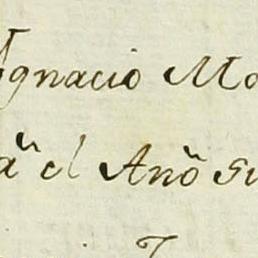 Ignacio Mo
a el Año su